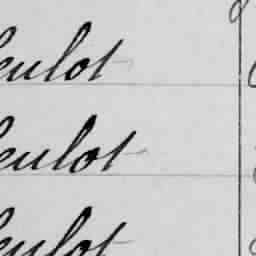 eulot
eulot
eulot